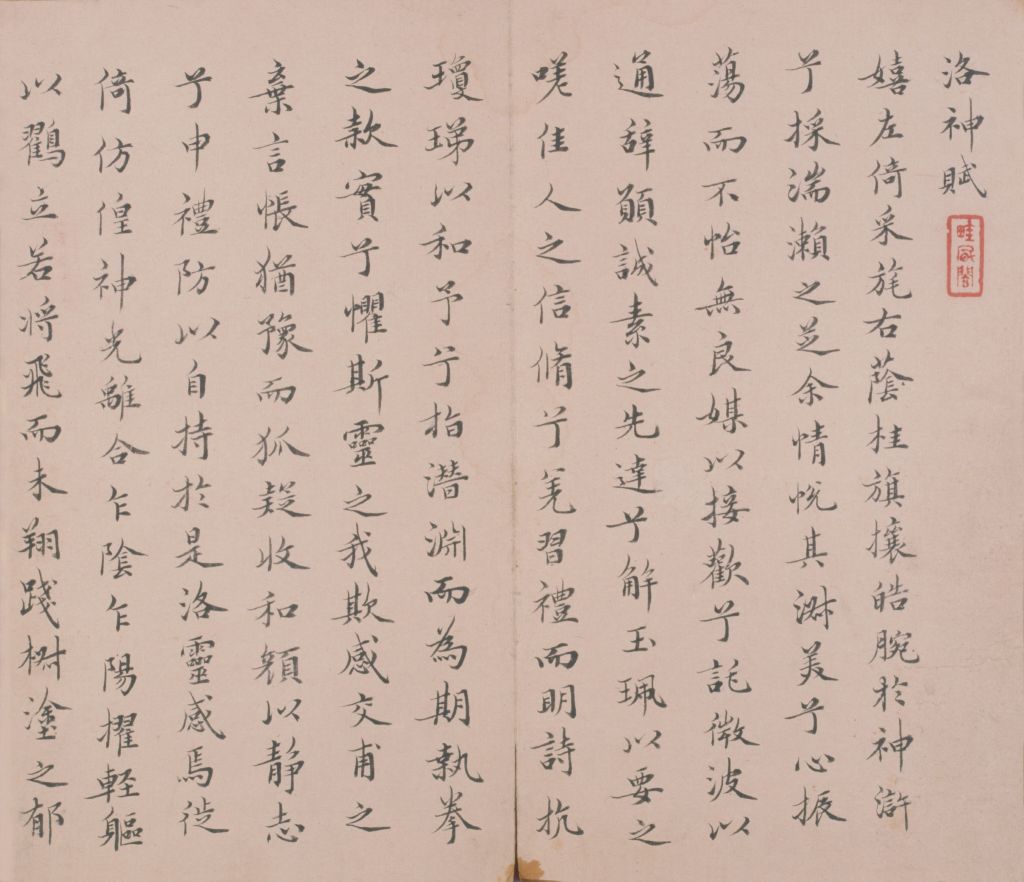 洛神賦
嬉左倚采旄右蔭桂旗攘皓腕於神滸
兮採湍瀨之芝余情悅其淋美兮心振
蕩而不怡無良媒以接歡兮託微波以
通辭願誠素之先達兮解玉珮以要之
嗟佳人之信脩兮羌習禮而明詩抗
瓊珶以和予兮指潛淵而為期執拳
之款實兮懼斯靈之我欺感交甫之
棄言悵猶豫而狐疑收和顏以靜志
兮申禮防以自持於是洛靈感焉徙
倚仿偟神光離合乍陰乍陽擢軽軀
以鸖立若將飛而未翔踐樹塗之郁